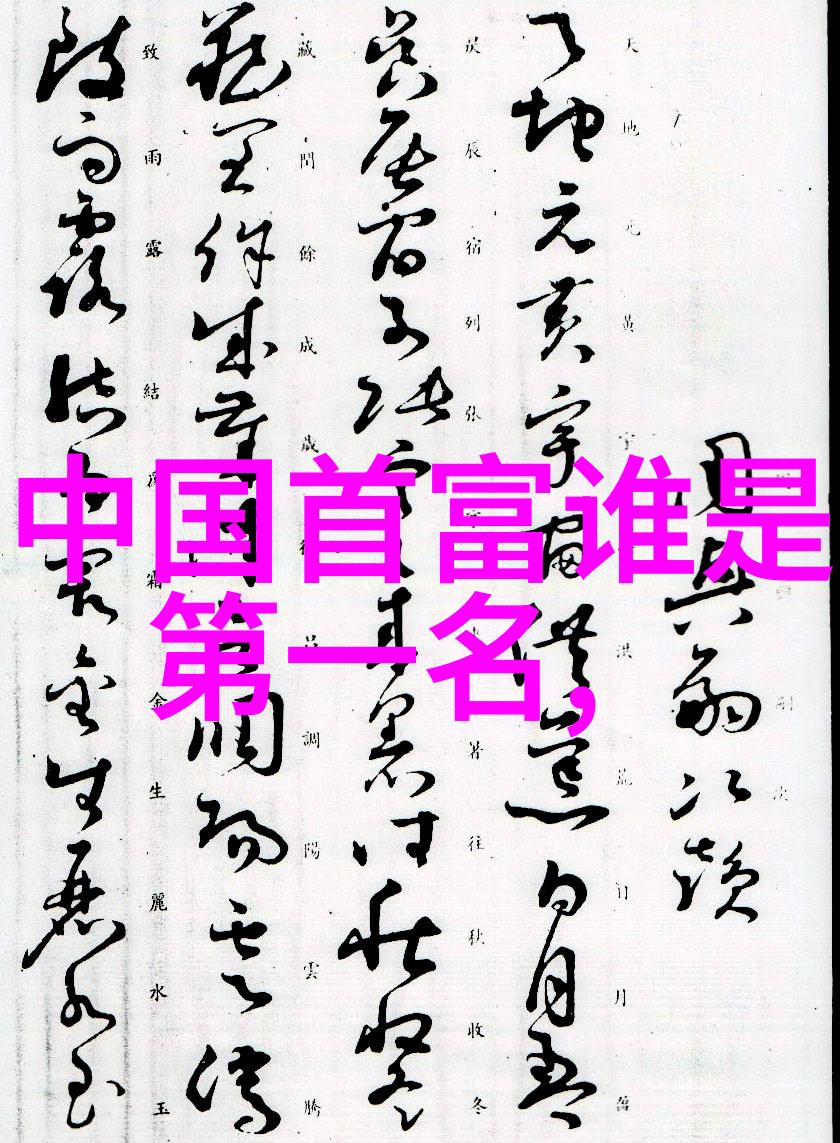 中国首富谁是
第一名,
周興嗣次韻
嗣次
天地元黄宇宙洪荒日月盈
天地元黄宇洪荒日月盈
昃辰宿列張寒來暑往秋收冬
昃辰宿列张寒來暑往秋收冬
藏閏餘成歲律吕調陽雲騰
藏閏餘成歲律吕調陽雲騰
致雨露結為霜金生麗水玉
致雨露結為霜金生麗水玉